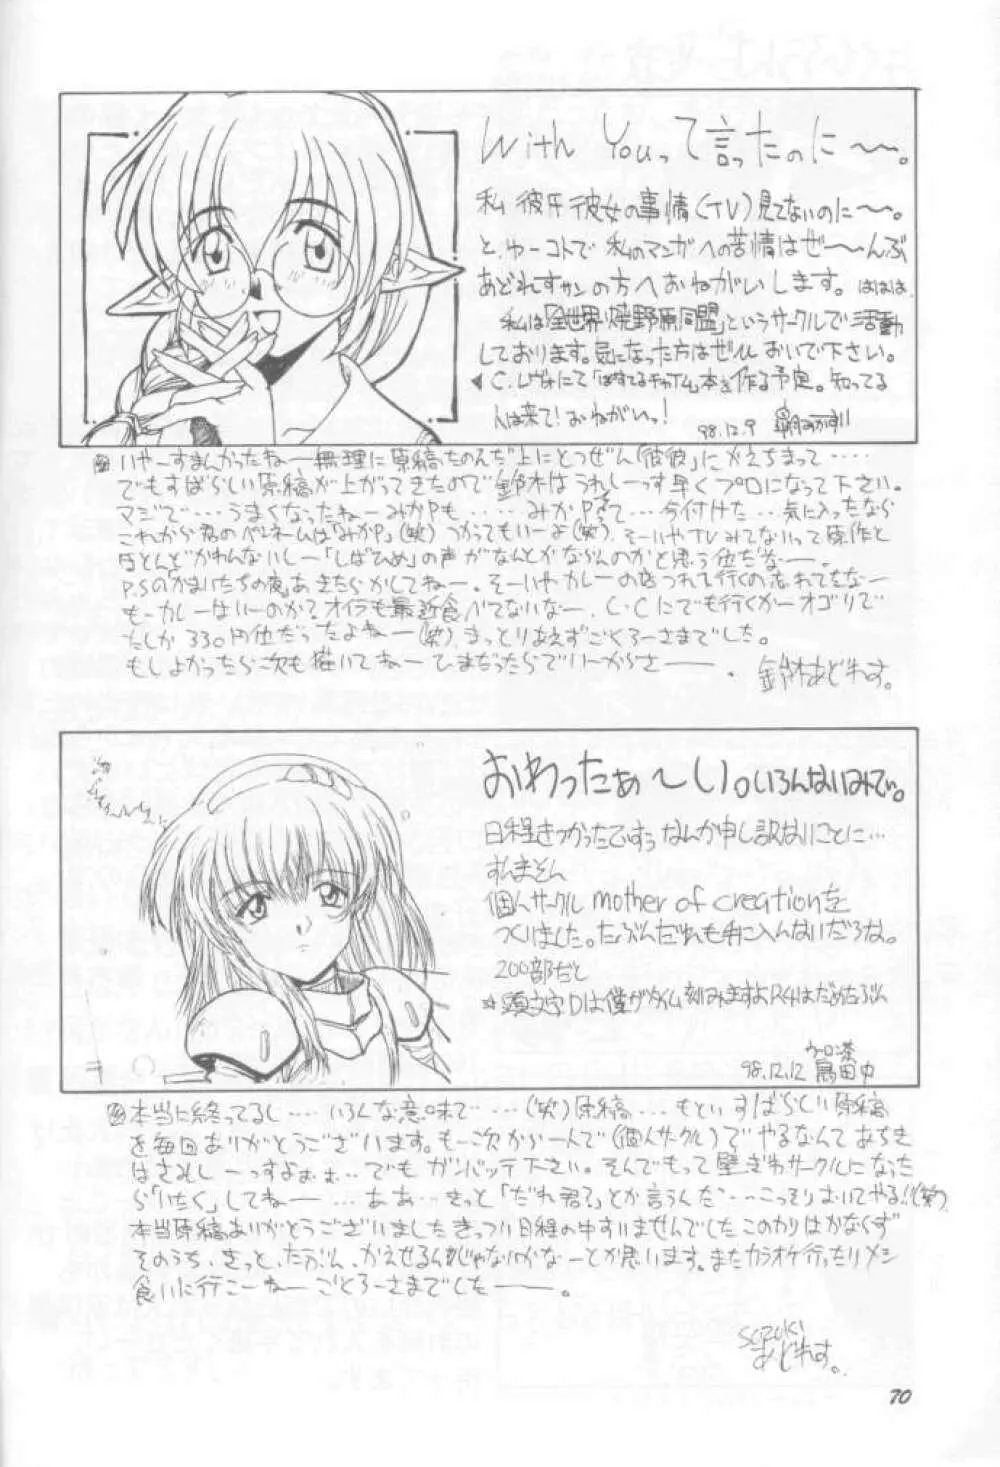 With Youって言ったのに〜〜。
私 彼氏彼女の事情(TV)見てないのに〜〜。
と、ゆーコトで 私のマンガへの苦情はぜ〜〜んぶ
あどれすサンの方へおねがいします。ははは、
私は「全世界焼野原同盟」というサークルで活動
しております。気になった方はぜひ おいで下さい。
C.レヴォにて「ぱすてるチャイム」本を作る予定。知ってる
人は来て!おねがいっ!
98.12.9
いやーすまんかったねー無理に原稿たのんだ上にとつぜん「彼彼」にかえちまって‥‥
でもすばらしい原稿が上がってきたので鈴木はうれしーっす早くプロになって下さい。
マジで‥‥うまくなったねーみかPも‥‥みかPって‥今付けた‥気に入ったなら
これから君のペンネームは「みかP」(笑)つかってもいーよ(笑)、そーいやTVみてないって原作と
ほとんどかわんないしー「しばひめ」の声がなんとかならんのかと思う位だなー。
P.Sのかまいたちの夜、あきたらかしてねー。そーいやカレーの店つれて行くの忘れてたなー
もーカレーはいーのか?オイラも最近食べてないなー、C・Cにでも行くかーオゴリで
たしか330円位だったよねー(笑)、まっとりあえずごくろーさまでした。
もしよかったら次も描いてねーひまだったらでいーからさ——
鈴木あどれす。
おわったぁ〜い。いろんないみでぃ。
日程きつかったですぅ なんか申し訳ないことに…
すんません
個人サークル mother of creationを
つくりました。たぶんだれも手に入んないだろな。
200部だと
*頭文字Dは僕がタイム刻みますよ
ウーロン茶
98.12.12 鳥田中
本当に終ってるし‥‥いろんな意味で‥‥(笑)原稿‥‥もとい すばらしい原稿
を毎回ありがとうございます。もー次から一人で(個人サークル)でやるなんてあちき
はさみしーっすよぉぉ‥でもガンバッテ下さい。そんでもって壁ぎわサークルになった
ら「いたく」してねー‥‥ああ‥きっと「だれ君?」とか言うんだ‥‥こっそりおいてやる!!(笑)
本当原稿ありがとうございましたきっつい日程の中すいませんでしたこのかりはかならず
そのうち、きっと、たぶん、かえせるんじゃないかなーとか思います。またカラオケ行ったりメシ
食いに行こーねー ごくろーさまでした——。
SUZUKI
あどれす。
70